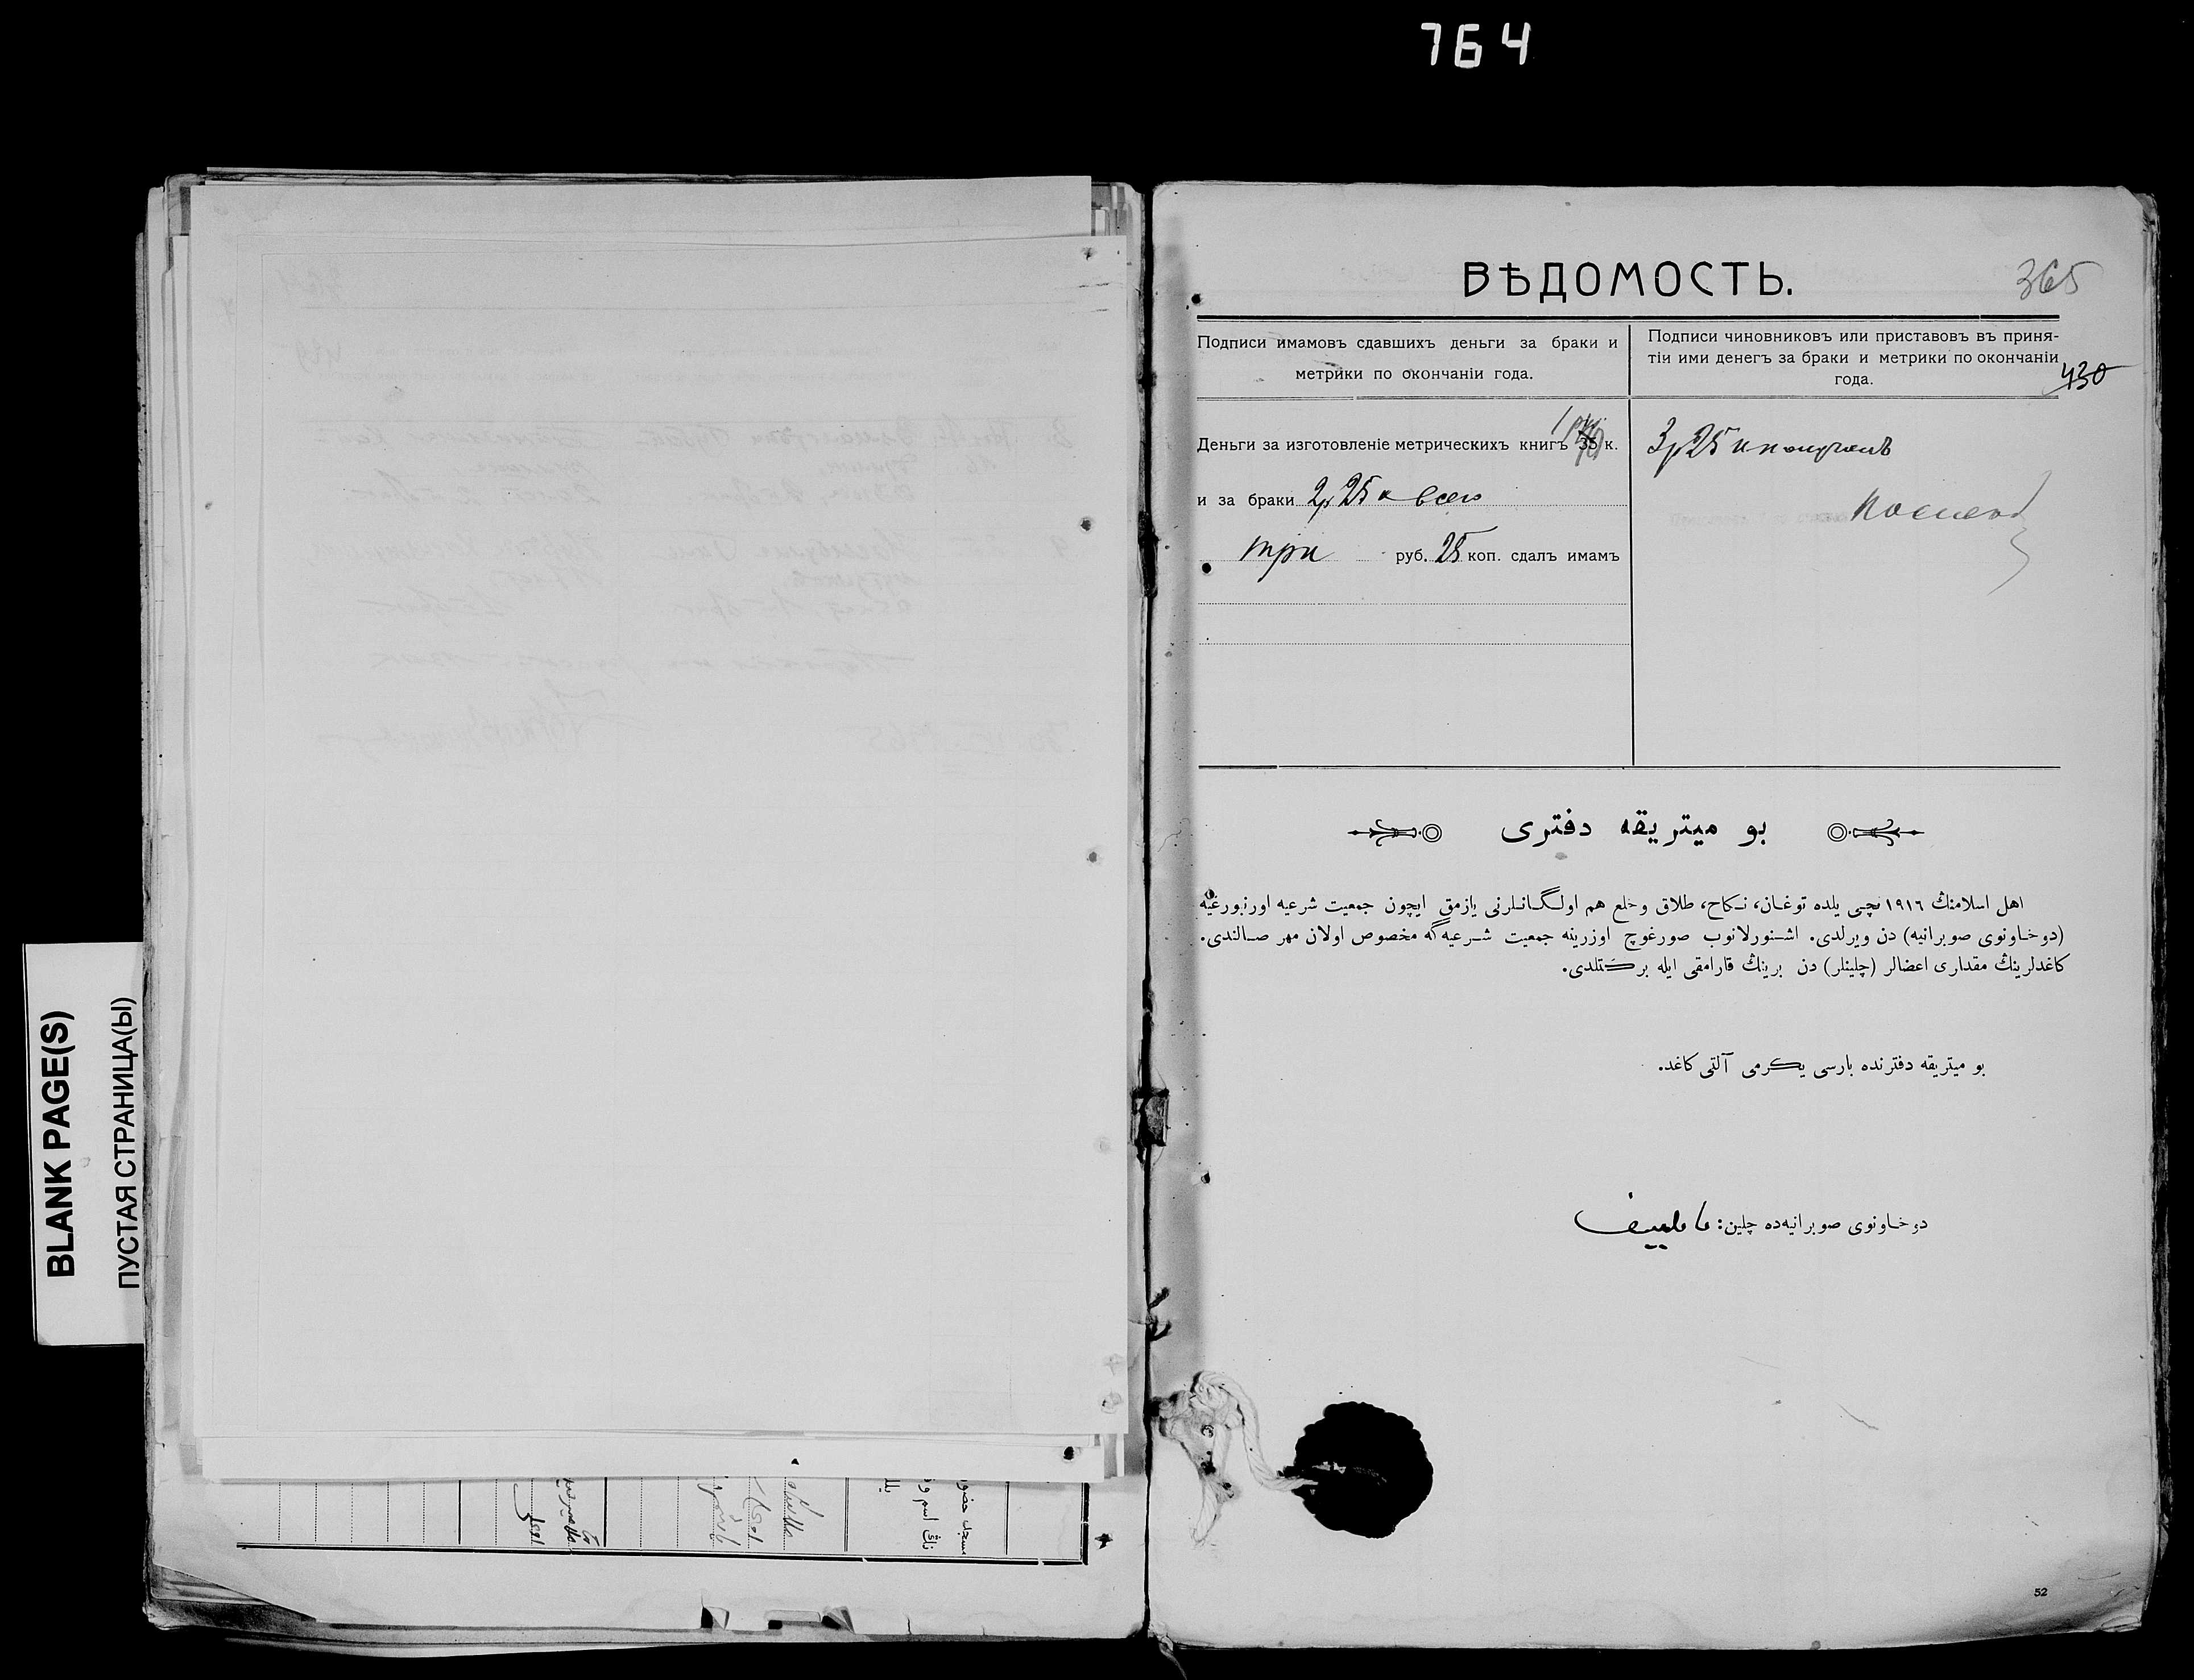 764
BLANK PAGE(S)
ПУСТАЯ СТРАНИЦА(Ы)
ВѢДОМОСТЬ.
365
Подписи имамовъ сдавшихъ деньги за браки и
метрики по окончаніи года.
Подписи чиновниковъ или приставовъ въ приня-
тіи ими денегъ за браки и метрики по окончаніи
года.
430
Деньги за изготовленіе метрическихъ книгъ 35 к.
и за браки 2р 25 к всего
три руб. 25 коп. сдалъ имамъ
3р 25 к получилъ
بو ميتريقه دفتری
اهل اسلامنڭ ١٩١٦ نچی يلده توغان، نكاح، طلاق وخلع هم اولگانلرنی يازمق ايچون جمعيت شرعيه اورنبورغيه
(دوخاونوی صوبرانيه) دن ويرلدی. اشنورلانوب صورغوچ اوزرينه جمعيت شرعيه‌گه مخصوص اولان مهر صالندی.
كاغدلرينڭ مقداری اعضالر (چلينلر) دن برينڭ قارامقی ايله بركتلدی.
بو ميتريقه دفترنده بارسی يكرمی آلتی كاغد.
دوخاونوی صوبرانيه‌ده چلين:
52